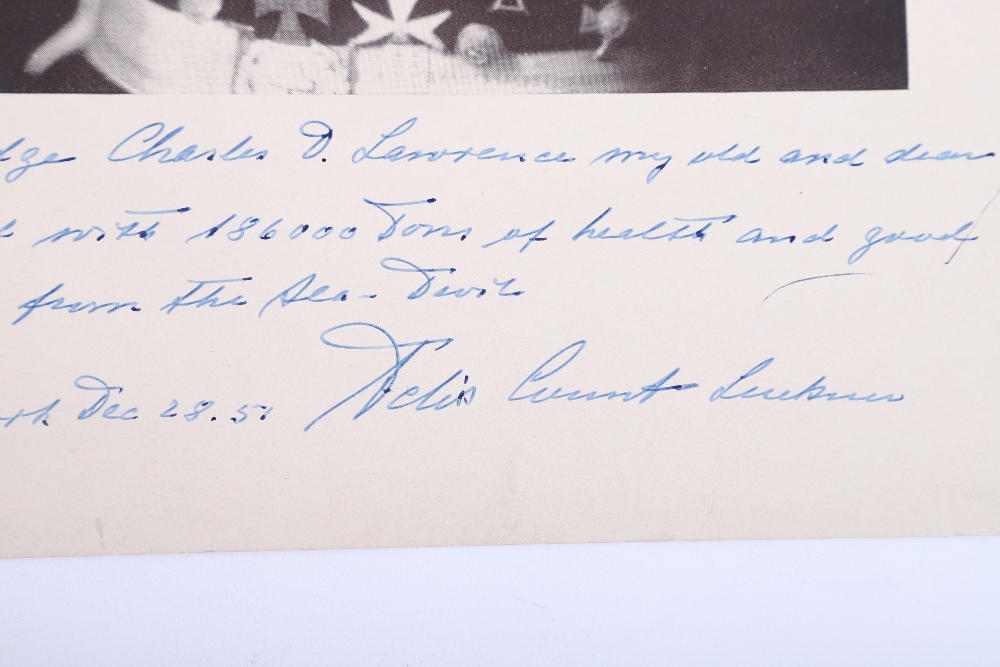 dge Charles D. Lawrence my old and dear
d with 186000 Tons of health and good
from the Sea-Devil
rk Dec 28. 51 Felix Count Luckner